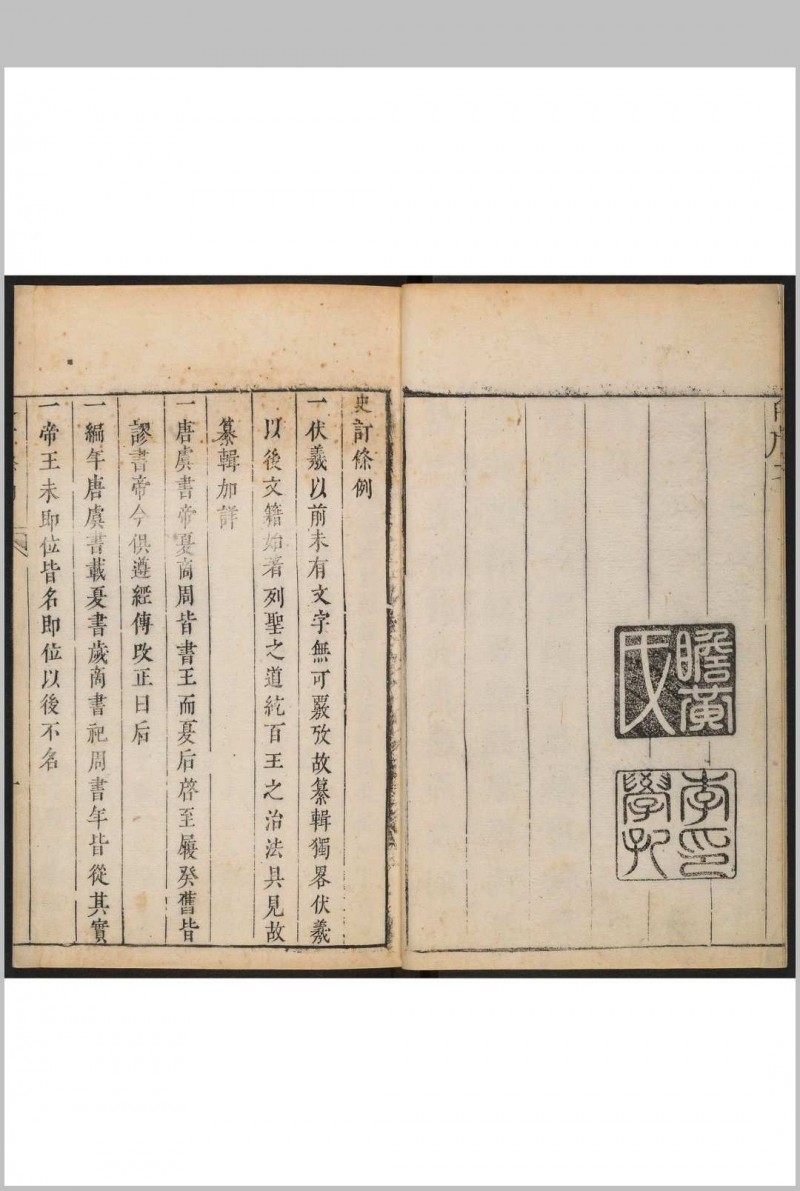 瞻黄氏
李學孔印
史訂條例
一伏羲以前未有文字無可覈攷故纂輯獨畧伏羲
以後文籍始著列聖之道統百王之治法具見故
纂輯加詳
一唐虞書帝夏商周皆書王而夏后啓至履癸舊皆
謬書帝今俱遵經傳改正曰后
一編年唐虞書載夏書歲商書祀周書年皆從其實
一帝王未即位皆名即位以後不名